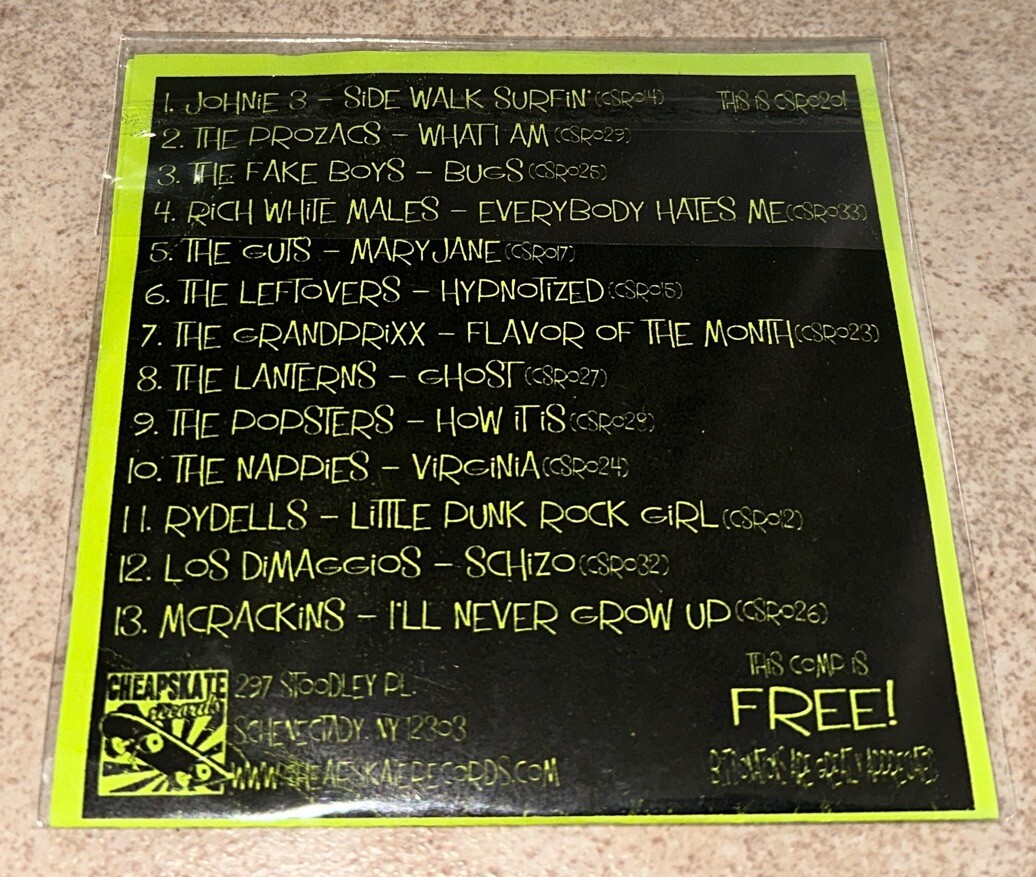 1. JOHNiE 3 – SiDE WALK SURFiN' (CSR014) THiS iS CSR020!
2. THE PROZACS – WHAT I AM (CSR029)
3. THE FAKE BOYS – BUGS (CSR025)
4. RiCH WHiTE MALES – EVERYBODY HATES ME (CSR033)
5. THE GUTS – MARY JANE (CSR017)
6. THE LEFTOVERS – HYPNOTiZED (CSR015)
7. THE GRANDPRiXX – FLAVOR OF THE MONTH (CSR023)
8. THE LANTERNS – GHOST (CSR027)
9. THE POPSTERS – HOW iT iS (CSR028)
10. THE NAPPiES – ViRGiNiA (CSR024)
11. RYDELLS – LiTTLE PUNK ROCK GiRL (CSR012)
12. LOS DiMAGGiOS – SCHiZO (CSR032)
13. MCRACKiNS – I'LL NEVER GROW UP (CSR026)
CHEAPSKATE
records
297 STOODLEY PL.
SCHENECTADY, NY 12303
WWW.CHEAPSKATERECORDS.COM
THiS COMP iS
FREE!
BUT DONATiONS ARE GREATLY APPRECiATED